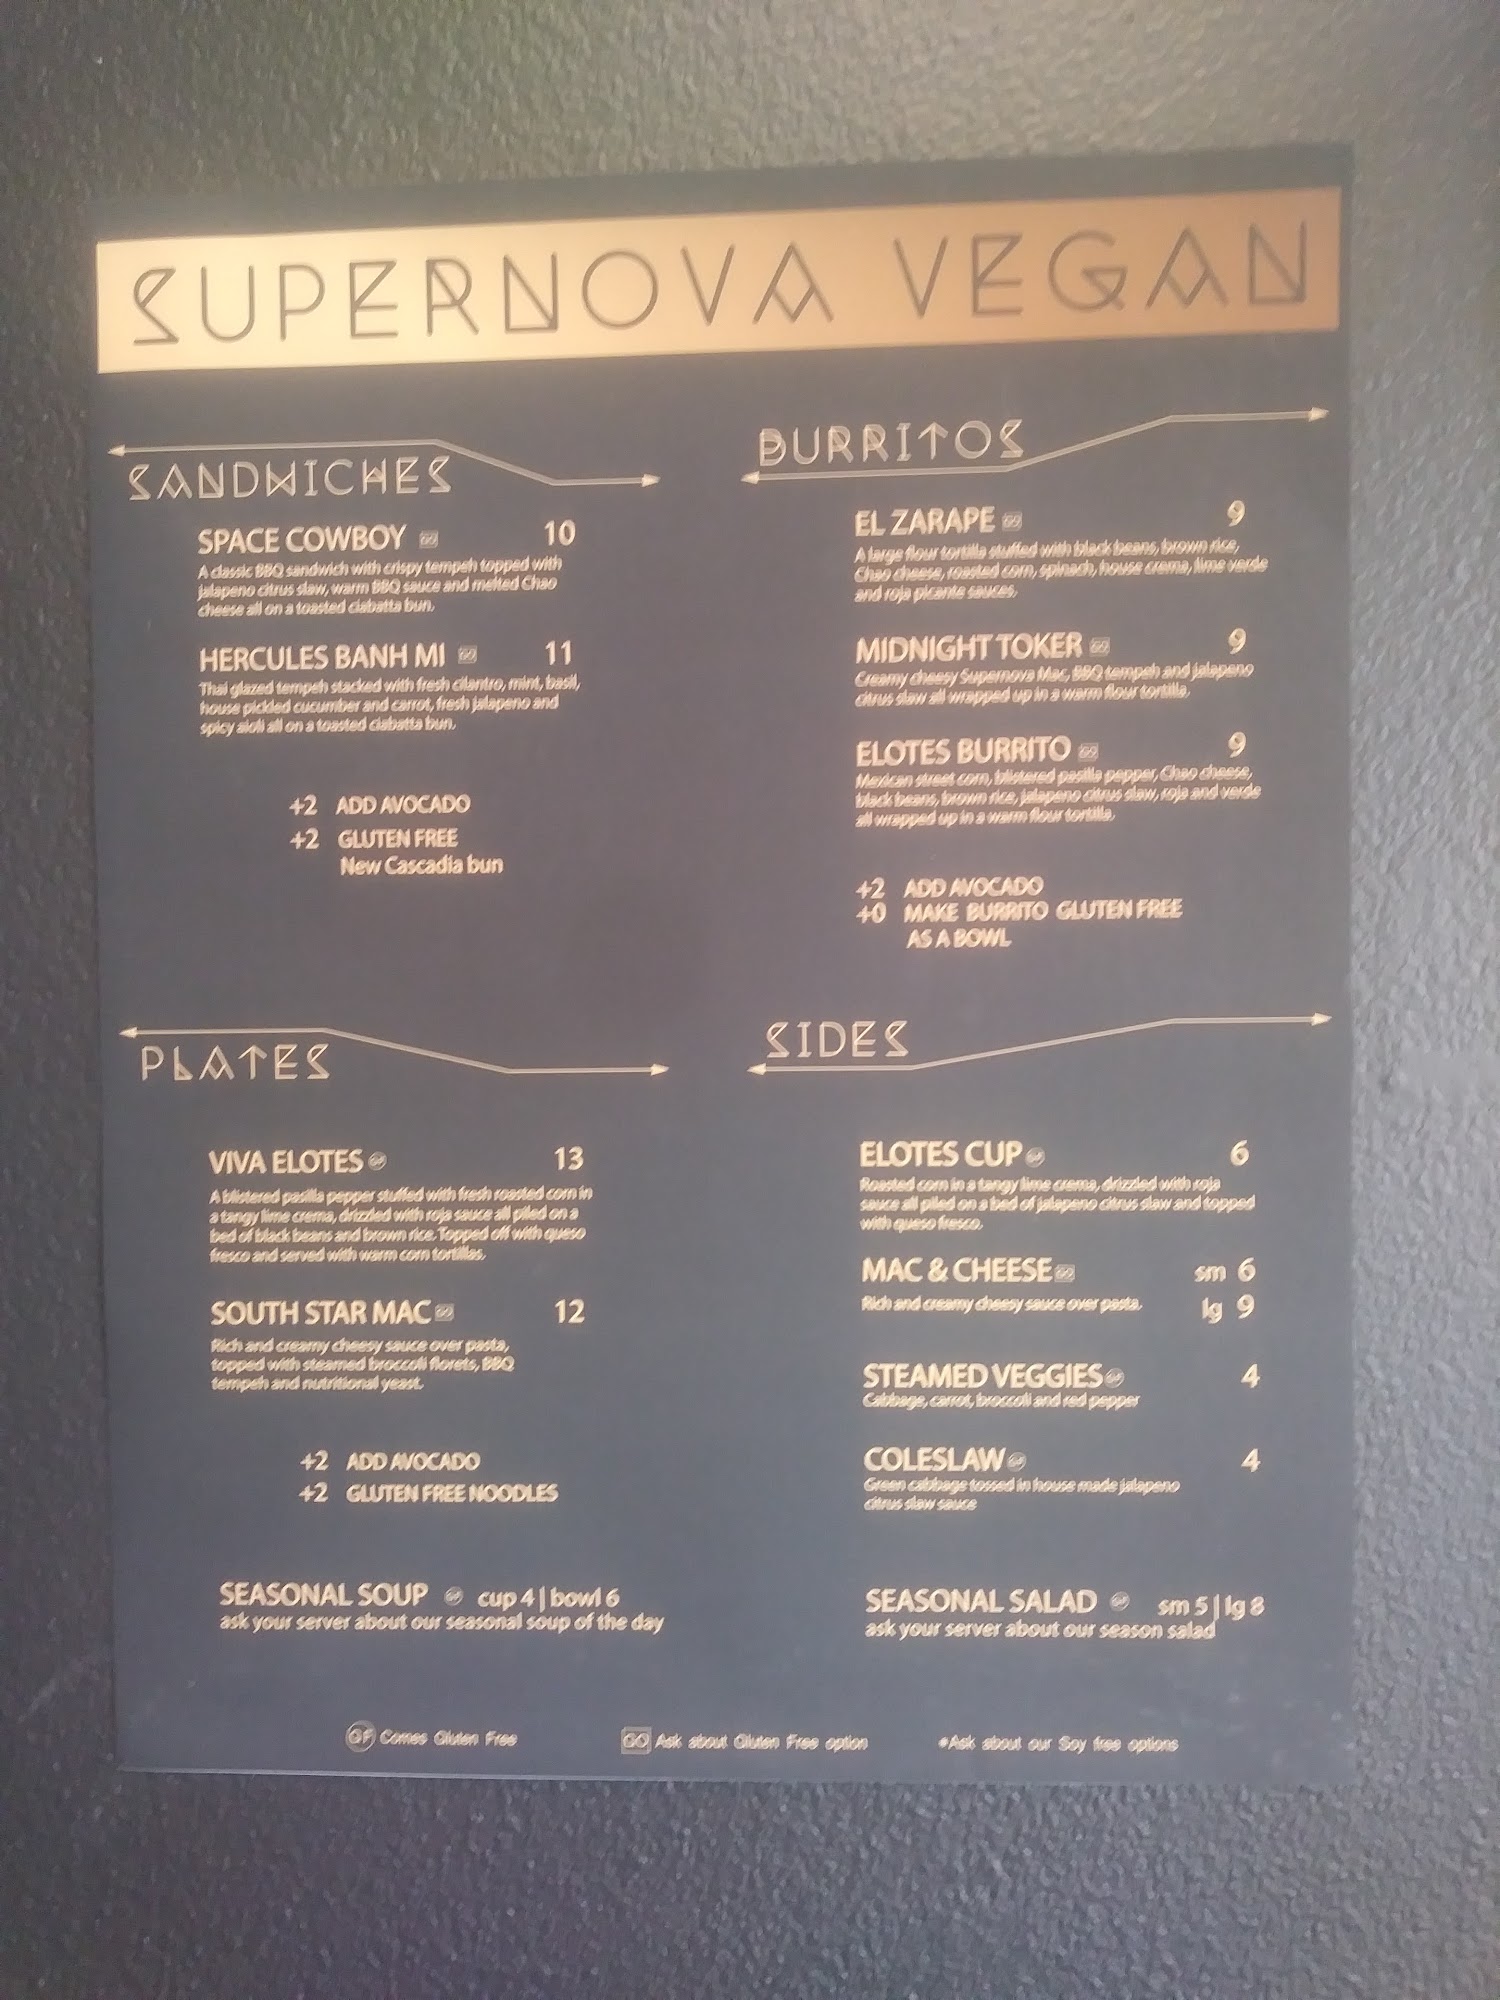 SUPERNOVA VEGAN
SANDWICHES
SPACE COWBOY GO 10
A classic BBQ sandwich with crispy tempeh topped with
jalapeno citrus slaw, warm BBQ sauce and melted Chao
cheese all on a toasted ciabatta bun.
HERCULES BANH MI GO 11
Thai glazed tempeh stacked with fresh cilantro, mint, basil,
house pickled cucumber and carrot, fresh jalapeno and
spicy aioli all on a toasted ciabatta bun.
+2 ADD AVOCADO
+2 GLUTEN FREE
New Cascadia bun
BURRITOS
EL ZARAPE GO 9
A large flour tortilla stuffed with black beans, brown rice,
Chao cheese, roasted corn, spinach, house crema, lime verde
and roja picante sauces.
MIDNIGHT TOKER GO 9
Creamy cheesy Supernova Mac, BBQ tempeh and jalapeno
citrus slaw all wrapped up in a warm flour tortilla.
ELOTES BURRITO GO 9
Mexican street corn, blistered pasilla pepper, Chao cheese,
black beans, brown rice, jalapeno citrus slaw, roja and verde
all wrapped up in a warm flour tortilla.
+2 ADD AVOCADO
+0 MAKE BURRITO GLUTEN FREE
AS A BOWL
PLATES
VIVA ELOTES GF 13
A blistered pasilla pepper stuffed with fresh roasted corn in
a tangy lime crema, drizzled with roja sauce all piled on a
bed of black beans and brown rice. Topped off with queso
fresco and served with warm corn tortillas.
SOUTH STAR MAC GO 12
Rich and creamy cheesy sauce over pasta,
topped with steamed broccoli florets, BBQ
tempeh and nutritional yeast.
+2 ADD AVOCADO
+2 GLUTEN FREE NOODLES
SEASONAL SOUP GF cup 4 | bowl 6
ask your server about our seasonal soup of the day
SIDES
ELOTES CUP GF 6
Roasted corn in a tangy lime crema, drizzled with roja
sauce all piled on a bed of jalapeno citrus slaw and topped
with queso fresco.
MAC & CHEESE GO sm 6
Rich and creamy cheesy sauce over pasta. lg 9
STEAMED VEGGIES GF 4
Cabbage, carrot, broccoli and red pepper
COLESLAW GF 4
Green cabbage tossed in house made jalapeno
citrus slaw sauce
SEASONAL SALAD GF sm 5 | lg 8
ask your server about our season salad
GF Comes Gluten Free GO Ask about Gluten Free option *Ask about our Soy free options